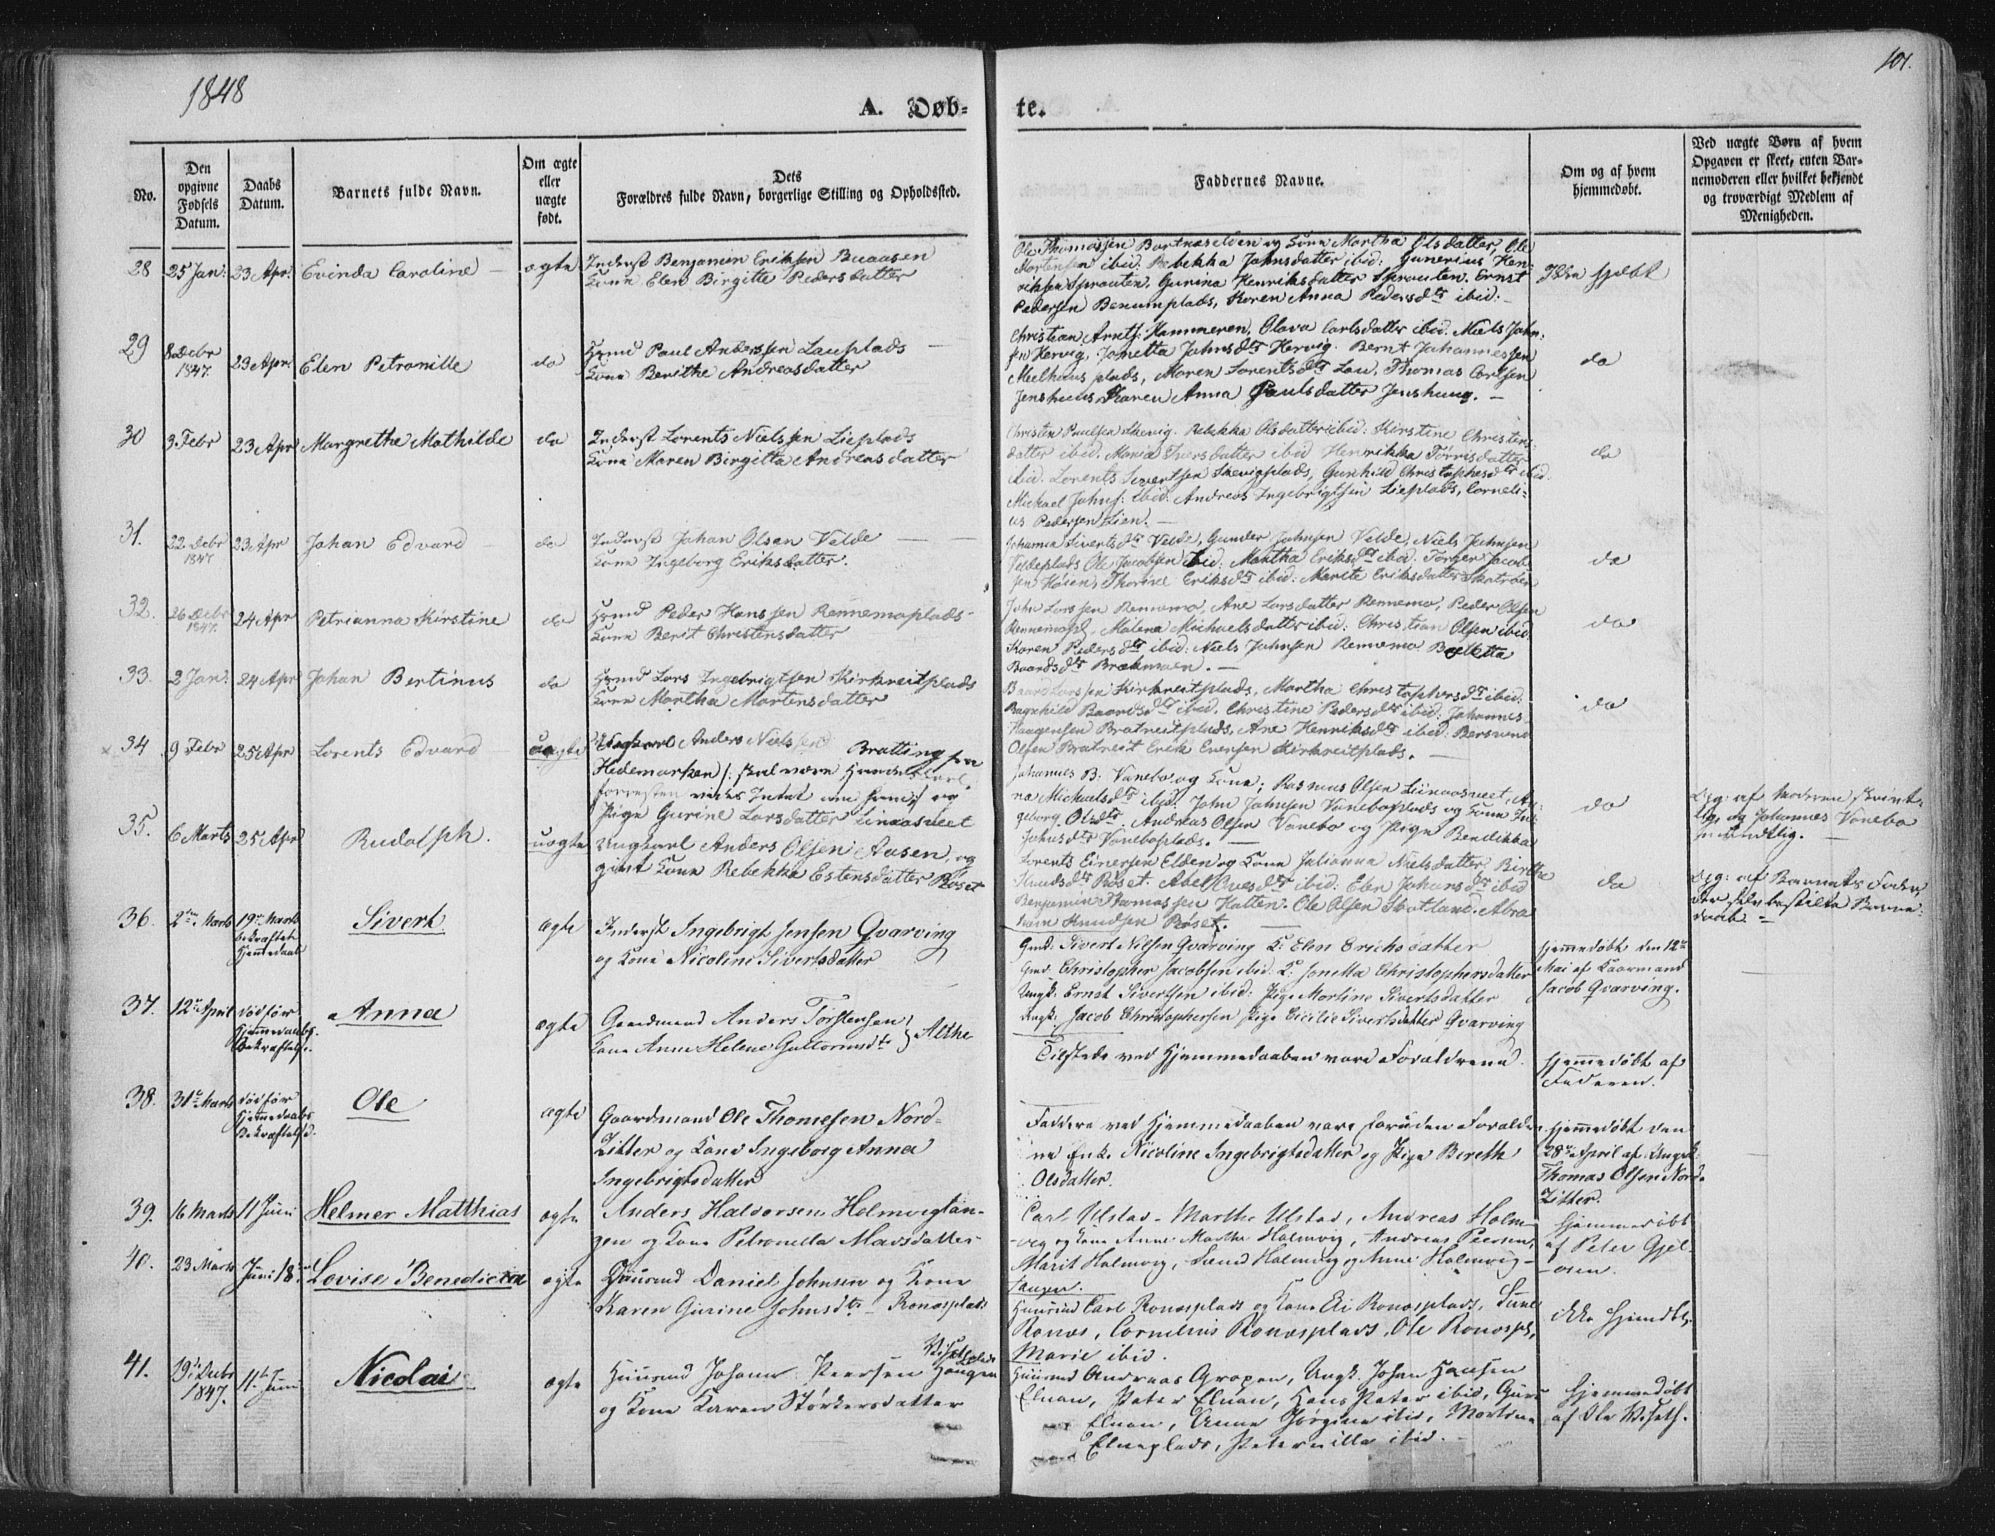 1848
101.
A. Døb-
te.
No.
Den
opgivne
Fødsels
Datum.
Daabs
Datum.
Barnets fulde Navn.
Om ægte
eller
uægte
født.
Dets
Forældres fulde Navn, borgerlige Stilling og Opholdssted.
Faddernes Navne.
Om og af hvem
hjemmedøbt.
Ved uægte Børn af hvem
Opgaven er skeet, enten Bar-
nemoderen eller hvilket bekjendt
og troværdigt Medlem af
Menigheden.
28
25 Jan:
23 Apr:
Evinda Caroline
ægte
Inderst Benjamin Eriksen Buaasen
Kone Elen Birgitte Pedersdatter
Ole Thomassen Bortnaselden og Kone Martha Olsdatter, Ole
Mortensen ibid: Rebekka Johnsdatter ibid: Gunerius Hen-
riksen Sprauten, Gurina Henriksdatter Sprauten. Ernst
Pedersen Benumplads, Karen Anna Pedersdtr ibid:
Ikke hjdbt
29
8 Debr
1847.
23 Apr.
Elen Petronille
do
Hmd Paul Anderssen Lauplads
Kone Berithe Andreasdatter
Christian Arntss: Hammeren, Olava Carlsdatter ibid. Niels John-
sen Hervig, Jonetta Johnsdtr Hervig. Bernt Johannessen
Meelhuus plads, Maren Lorentsdtr Lau, Thomas Carlsen
Jenshuus, Karen Anna Paulsdatter Jenshuug.
do
30
3 Febr
23 Apr
Margrethe Mathilde
do
Inderst Lorents Nielssen Lieplads
Kone Maren Birgitta Andreasdatter
Christen Paulsen Skevig. Rebekka Olsdatter ibid: Kirstine Christens
datter ibid. Maria Iversdatter ibid Henrikka Tørrisdatter
ibid. Lorents Sivertsen Skevigplads, Gunhild Christophersdtr ibid
Michael Johns: ibid: Andreas Ingebrigtsen Lieplads, Corneli-
us Pedersen Lien.
do
31.
22 Debr
1847.
23 Apr
Johan Edvard
do
Inderst Johan Olsen Velde
Kone Ingeborg Eriksdatter.
Johanna Sivertsdtr Velde, Gunder Johnsen Velde, Niels Johnsen
Veldeplads Ole Jacobsen ibid: Martha Eriksdtr ibid. Torger Jacob-
sen Høien, Thorine Eriksdtr ibid: Marite Eriksdatter
do
32.
26 Debr
1847.
24 Apr
Petrianna Kirstine
do
Hmd Peder Hanssen Rennemoplads
Kone Berit Christensdatter
John Larssen Rennemo, Ane Larsdatter Rennemo, Peder Olsen
Rennemopl, Malena Michaelsdatter ibid: Christian Olsen ibid.
Karen Pedersdtr ibid: Niels Johnsen Rennemo
Baardsdtr Brækmoen.
do
33.
2 Jan:
24 Apr
Johan Bertinus
do
Hmd Lars Ingebrigtsen Kirkreitplads
Kone Martha Mortensdatter
Baard Larssen Kirkreitplads, Martha Christophersdtr ibid.
Ragnhild Baardsdtr ibid. Christine Pedersdtr ibid: Johannes
Haagensen Bratreitplads, Ane Henriksdtr ibid:
Olsen Bratreit Erik Evensen Kirkreitplads.
do
34
9 Febr
25 Apr
Lorents Edvard
uægte
Ungkarl Anders Nielssen Bratting fra
Hedemarken /: skal være Handelskarl,
forresten vides Intet om ham :/ og
Pige Gurine Larsdatter Linaasneet
Johannes B. Vanebo og Kone; Rasmus Olsen Linaasneet, An-
na Michaelsdtr ibid. John Johnsen Vaneboplads og Kone In-
geborg Olsdtr. Andreas Olsen Vanebo og Pige Bendikka
Johnsdtr Vaneboplads.
do
Opg: af Moderen skrift-
lig, og Johannes Vanebo
mundtlig.
35.
6 Marts
25 Apr
Rudolph.
uægte
Ungkarl Anders Olsen Aasen, og
gift Kone Rebekka Estensdatter Røset
Lorents Einersen Elden og Kone Julianna Nielsdatter Birthe
Knudsdtr Røset. Abel Ovesdtr ibid: Elen Johansdtr ibid
Benjamin Thomassen Hatten. Ole Olsen Skatland. Abra
ham Knudsen Røset.
do
Opg: af Barnets Fader,
der selv bestilte Barne-
daab.
36.
2den Marts
19de Marts
bekræftet
Hjemmedaab
Sivert
ægte
Inderst Ingebrigt Jensen Qvarving
og Kone Nicoline Sivertsdatter
Gmd. Sivert Nilsen Qvarving K. Elen Erichsdatter
Gmd. Christopher Jacobsen ibid. K. Jonetta Christophersdatter
Ungk. Ernst Sivertsen ibid: Pige Martine Sivertsdatter
Ungk. Jacob Christophersen Pige Cicilie Sivertsdatter Qvarving
Hjemmedøbt den 12te
Mai af Gaarmand
Jacob Qvarving.
37.
12te April
død før
Hjemmedaabs-
Bekræftelse.
Anna
ægte
Gaardmand Anders Torstensen
Kone Anne Helene Guttormsdtr } Asthe
Tilstede ved Hjemmedaaben vare Forældrene
Hjemmedøbt af
Faderen.
38.
31te Marts
død før
Hjemmedaabs
Bekræftelse.
Ole
ægte
Gaardmand Ole Thomesen Nord-
Zitter og Kone Ingeborg Anna
Ingebrigtsdatter
Faddere ved Hjemmedaaben vare foruden Foraldre-
ne Enke Nicoline Ingebrigtsdatter og Pige Bereth
Olsdatter.
Hjemmedøbt den
28de April af Ungk
Thomas Olsen Nord-
Zitter.
39.
16 Marts
11 Juni
Helmer Matthias
ægte
Anders Haldorsen Holmvigtan-
gen og Kone Petronella Madsdatter
Carl Ulstad - Marthe Ulstad, Andreas Holm-
vig og Kone Anne Marthe Holmvig, Andreas Peersen,
Marit Holmvig, Holmvig og Anne Holmvig-
tangen.
Hjemmedøbt
af Peter Gjel-
osen.
40.
23 Marts
Juni 18
Lovise Benedicta
ægte
Huusmd Daniel Johnsen og Kone
Karen Gurine Johnsdtr - Ronæsplads
Huusmd Carl Ronæsplads og Kone Eli Ronæsplads,
Ronæs, Cornelius Ronæsplads, Ole Ronæspl,
Marie ibid.
ikke Hjemdbt.
41.
19de Debr
1847.
11te Juni
Nicolai
ægte
Huusmd Johan Peersen Haugen
og Kone Karen Størkersdatter
Huusmd Andreas Gropen, Ungk. Johan Hansen
Elnan, Peter Elnan, Hans Peter ibid, Guru
Elnan, Anne Jørgine ibid, Martine
Elneplads, Peternille ibid.
Hjemmedøbt
af Ole Viseth.